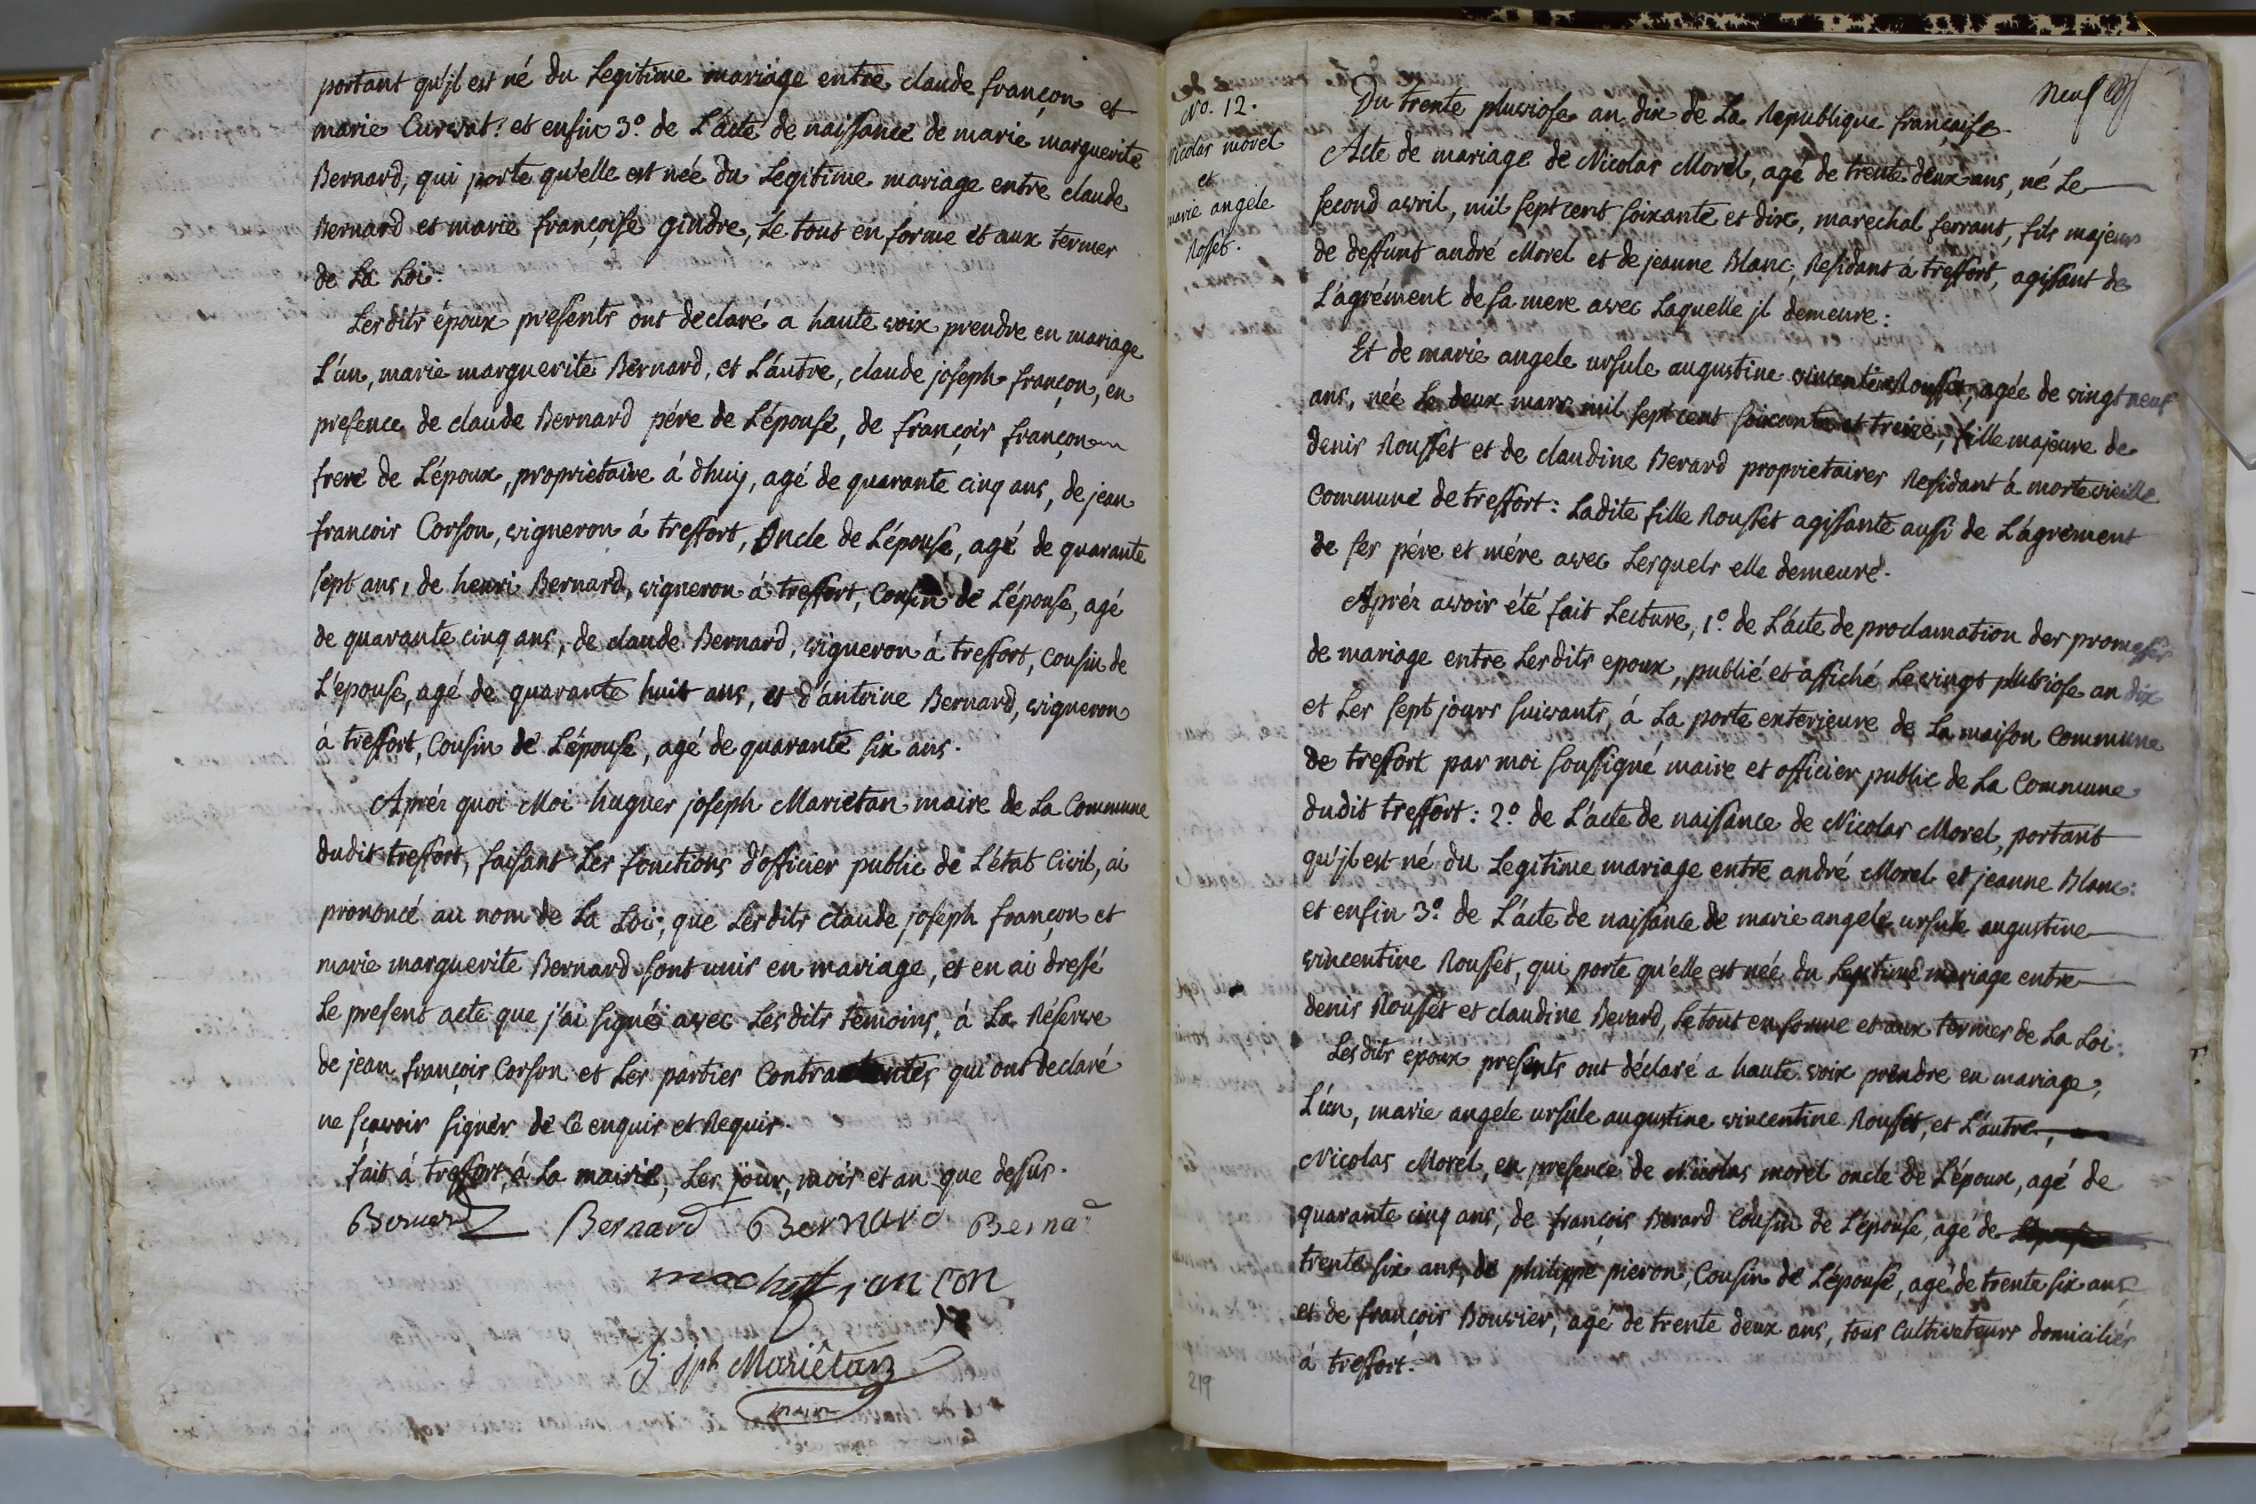 portant qu'jl est né du Legitime mariage entre claude françon et
marie Curvat: et enfin 3.º de L'acte de naissance de marie marguerite
Bernard, qui porte qu'elle est née du Legitime mariage entre claude
Bernard et marie françoise gindre, Le tout en forme et aux termes
de La Loi.
Les dits époux presents ont declaré a haute voix prendre en mariage
L'un, marie marguerite Bernard, et L'autre, claude joseph françon, en
presence de claude Bernard pére de L'épouse, de françois françon
frere de L'époux, proprietaire á dhuij, agé de quarante cinq ans, de jean
françois Corson, vigneron á treffort, Oncle de L'épouse, agé de quarante
sept ans, de henri Bernard, vigneron á treffort, Cousin de L'épouse, agé
de quarante cinq ans, de claude Bernard, vigneron á treffort, cousin de
L'epouse, agé de quarante huit ans, et d'antoine Bernard, vigneron
á treffort, Cousin de L'épouse, agé de quarante six ans.
Aprés quoi Moi hugues joseph Mariétan maire de La Commune
dudit treffort, faisant Les fonctions d'officier public de L'état Civil, ai
prononcé au nom de La Loi, que Lesdits claude joseph françon et
marie marguerite Bernard sont unis en mariage, et en ai dressé
Le present acte que j'ai signé avec Les dits témoins, á La Réserve
de jean françois Corson et Les parties Contractantes qui ont declaré
ne sçavoir signer de Ce enquis et Requis.
fait á treffort, á La mairie, Les jour, mois et an que dessus.
Bernard Bernard Bernard Bernad
françon
jph Mariêtan
maire
Neuf
No. 12.
nicolas morel
et
marie angele
Rosset.
Du trente pluviose an dix de La Republique française.
Acte de mariage de Nicolas Morel, agé de trente deux ans, né Le
second avril, mil sept cent soixante et dix, marechal ferrant, fils majeur
de deffunt andré Morel et de jeanne Blanc, Residant á treffort, agissant de
L'agrément de sa mere avec Laquelle jl demeure:
Et de marie angele ursule augustine vincentine Rousset, agée de vingt neuf
ans, née Le deux mars mil sept cent soixante et treize, fille majeure de
denis Rousset et de claudine Berard proprietaires Residant á mortevieille
Commune de treffort: Ladite fille Rousset agissante aussi de L'agrement
de ses pére et mére avec Lesquels elle demeure.
Aprés avoir été fait Lecture, 1.º de L'acte de proclamation des promesses
de mariage entre Lesdits epoux, publié et affiché Le vingt pluviose an dix
et Les sept jours suivants, á La porte exterieure de La maison Commune
de treffort par moi soussigné maire et officier public de La Commune
dudit treffort: 2.º de L'acte de naissance de Nicolas Morel, portant
qu'jl est né du Legitime mariage entre andré Morel et jeanne Blanc:
et enfin 3.º de L'acte de naissance de marie angele ursule augustine
vincentine Rousset, qui porte qu'elle est née du Legitime mariage entre
denis Rousset et claudine Berard, Le tout en forme et aux termes de La Loi.
Les dits époux presents ont déclaré a haute voix prendre en mariage,
L'un, marie angele ursule augustine vincentine Rousset, et L'autre,
Nicolas Morel, en presence de Nicolas morel oncle de L'époux, agé de
quarante cinq ans, de françois Berard Cousin de L'épouse, agé de
trente six ans, de philippe pieron, Cousin de L'épouse, agé de trente six ans
et de françois Bouvier, agé de trente deux ans, tous Cultivateurs domiciliés
á treffort.
219